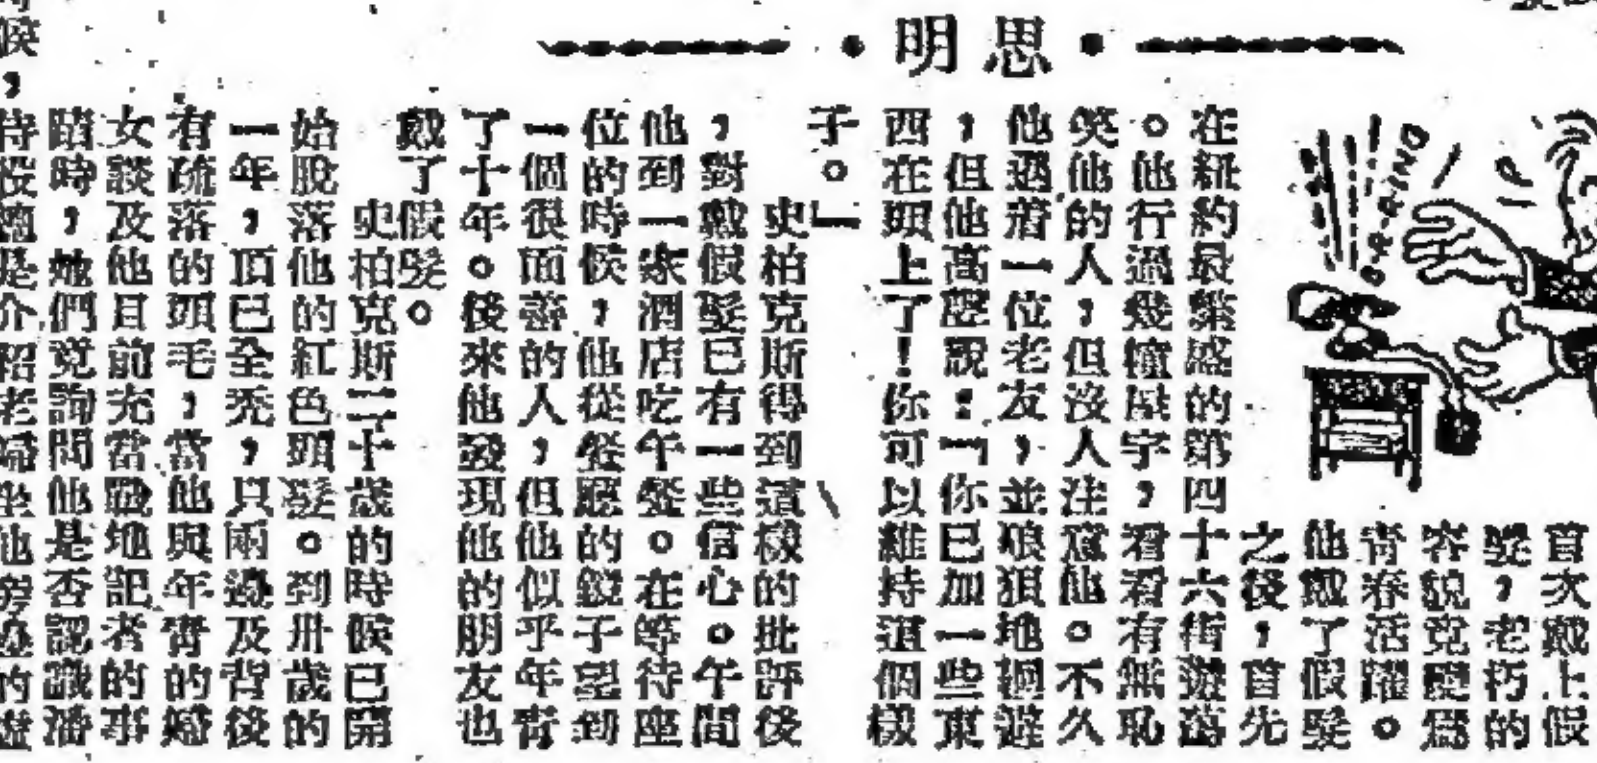 ·明思·
首次戴上假
髮，老朽的
容貌竟變爲
青春活躍。
他戴了假髮
之後，首先
在紐約最繁盛的第四十六街遊蕩
。他行過幾幢屋宇，看看有無恥
笑他的人，但沒人注意他。不久
他遇着一位老友，並狼狽地迴避
，但他高聲說：「你已加一些東
西在頭上了！你可以維持這個樣
子。」
史柏克斯得到這樣的批評後
，對戴假髮已有一些信心。午間
他到一家酒店吃午餐。在等待座
位的時候，他從餐廳的鏡子望到
一個很面善的人，但他似乎年青
了十年。後來他發現他的朋友也
戴了假髮。
史柏克斯二十歲的時候已開
始脫落他的紅色頭髮。到卅歲的
一年，頂已全禿，只兩邊及背後
有疏落的頭毛，當他與年青的婦
女談及他目前充當戰地記者的事
蹟時，她們竟詢問他是否認識潘
候，
BR-R-RING